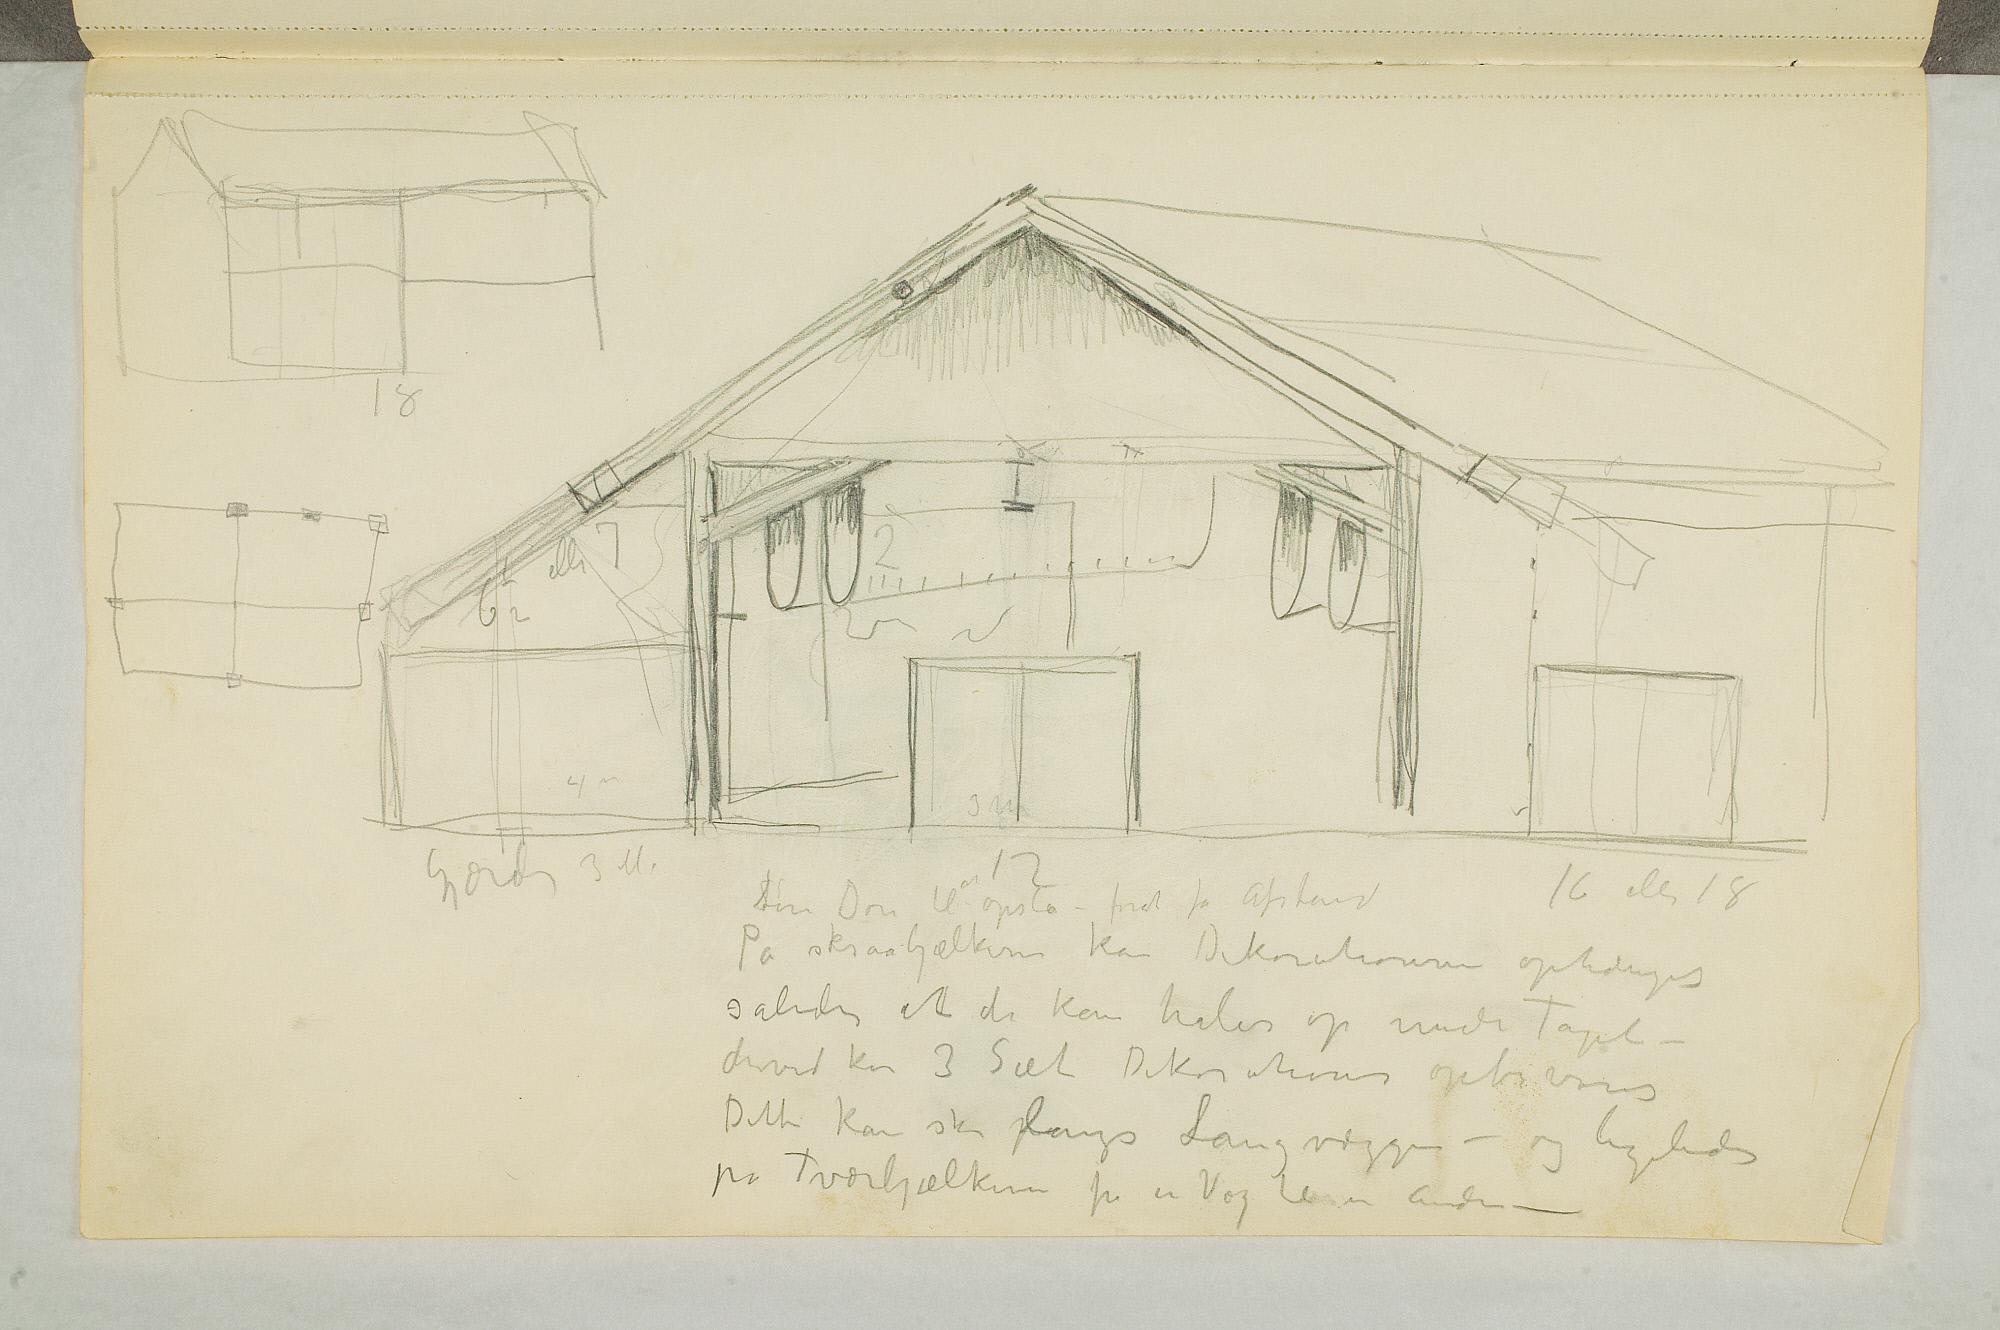 18
6½ eller 7
2
4 m
3 m
Gjærde 3 M.
12
16 eller 18
Dør til at opstå – for Afstand
Pa skraabjælkerne kan Dekorationerne ophænges
saledes at de kan hales op under Taget –
derved kan 3 Sæt Dekorationer opbevares
Dette kan ske langs Langvæggen – og ligeledes
på Tværbjælkerne fra en Væg til en anden –